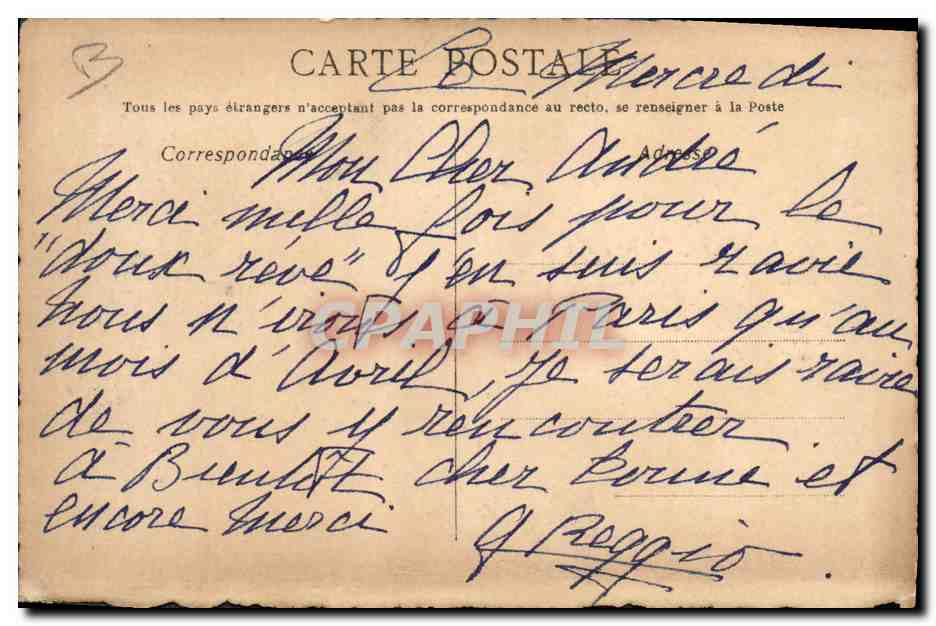 B
CARTE POSTALE
Ce Mercredi
Tous les pays étrangers n'acceptent pas la correspondance au recto, se renseigner à la Poste
Correspondance
Adresse
Mon Cher André
Merci mille fois pour le
"doux rêve" j'en suis ravie
nous n'irons à Paris qu'au
mois d'Avril, je serais ravie
de vous y rencontrer
à Bientôt cher et
encore merci
G Reggio
CPAPHIL